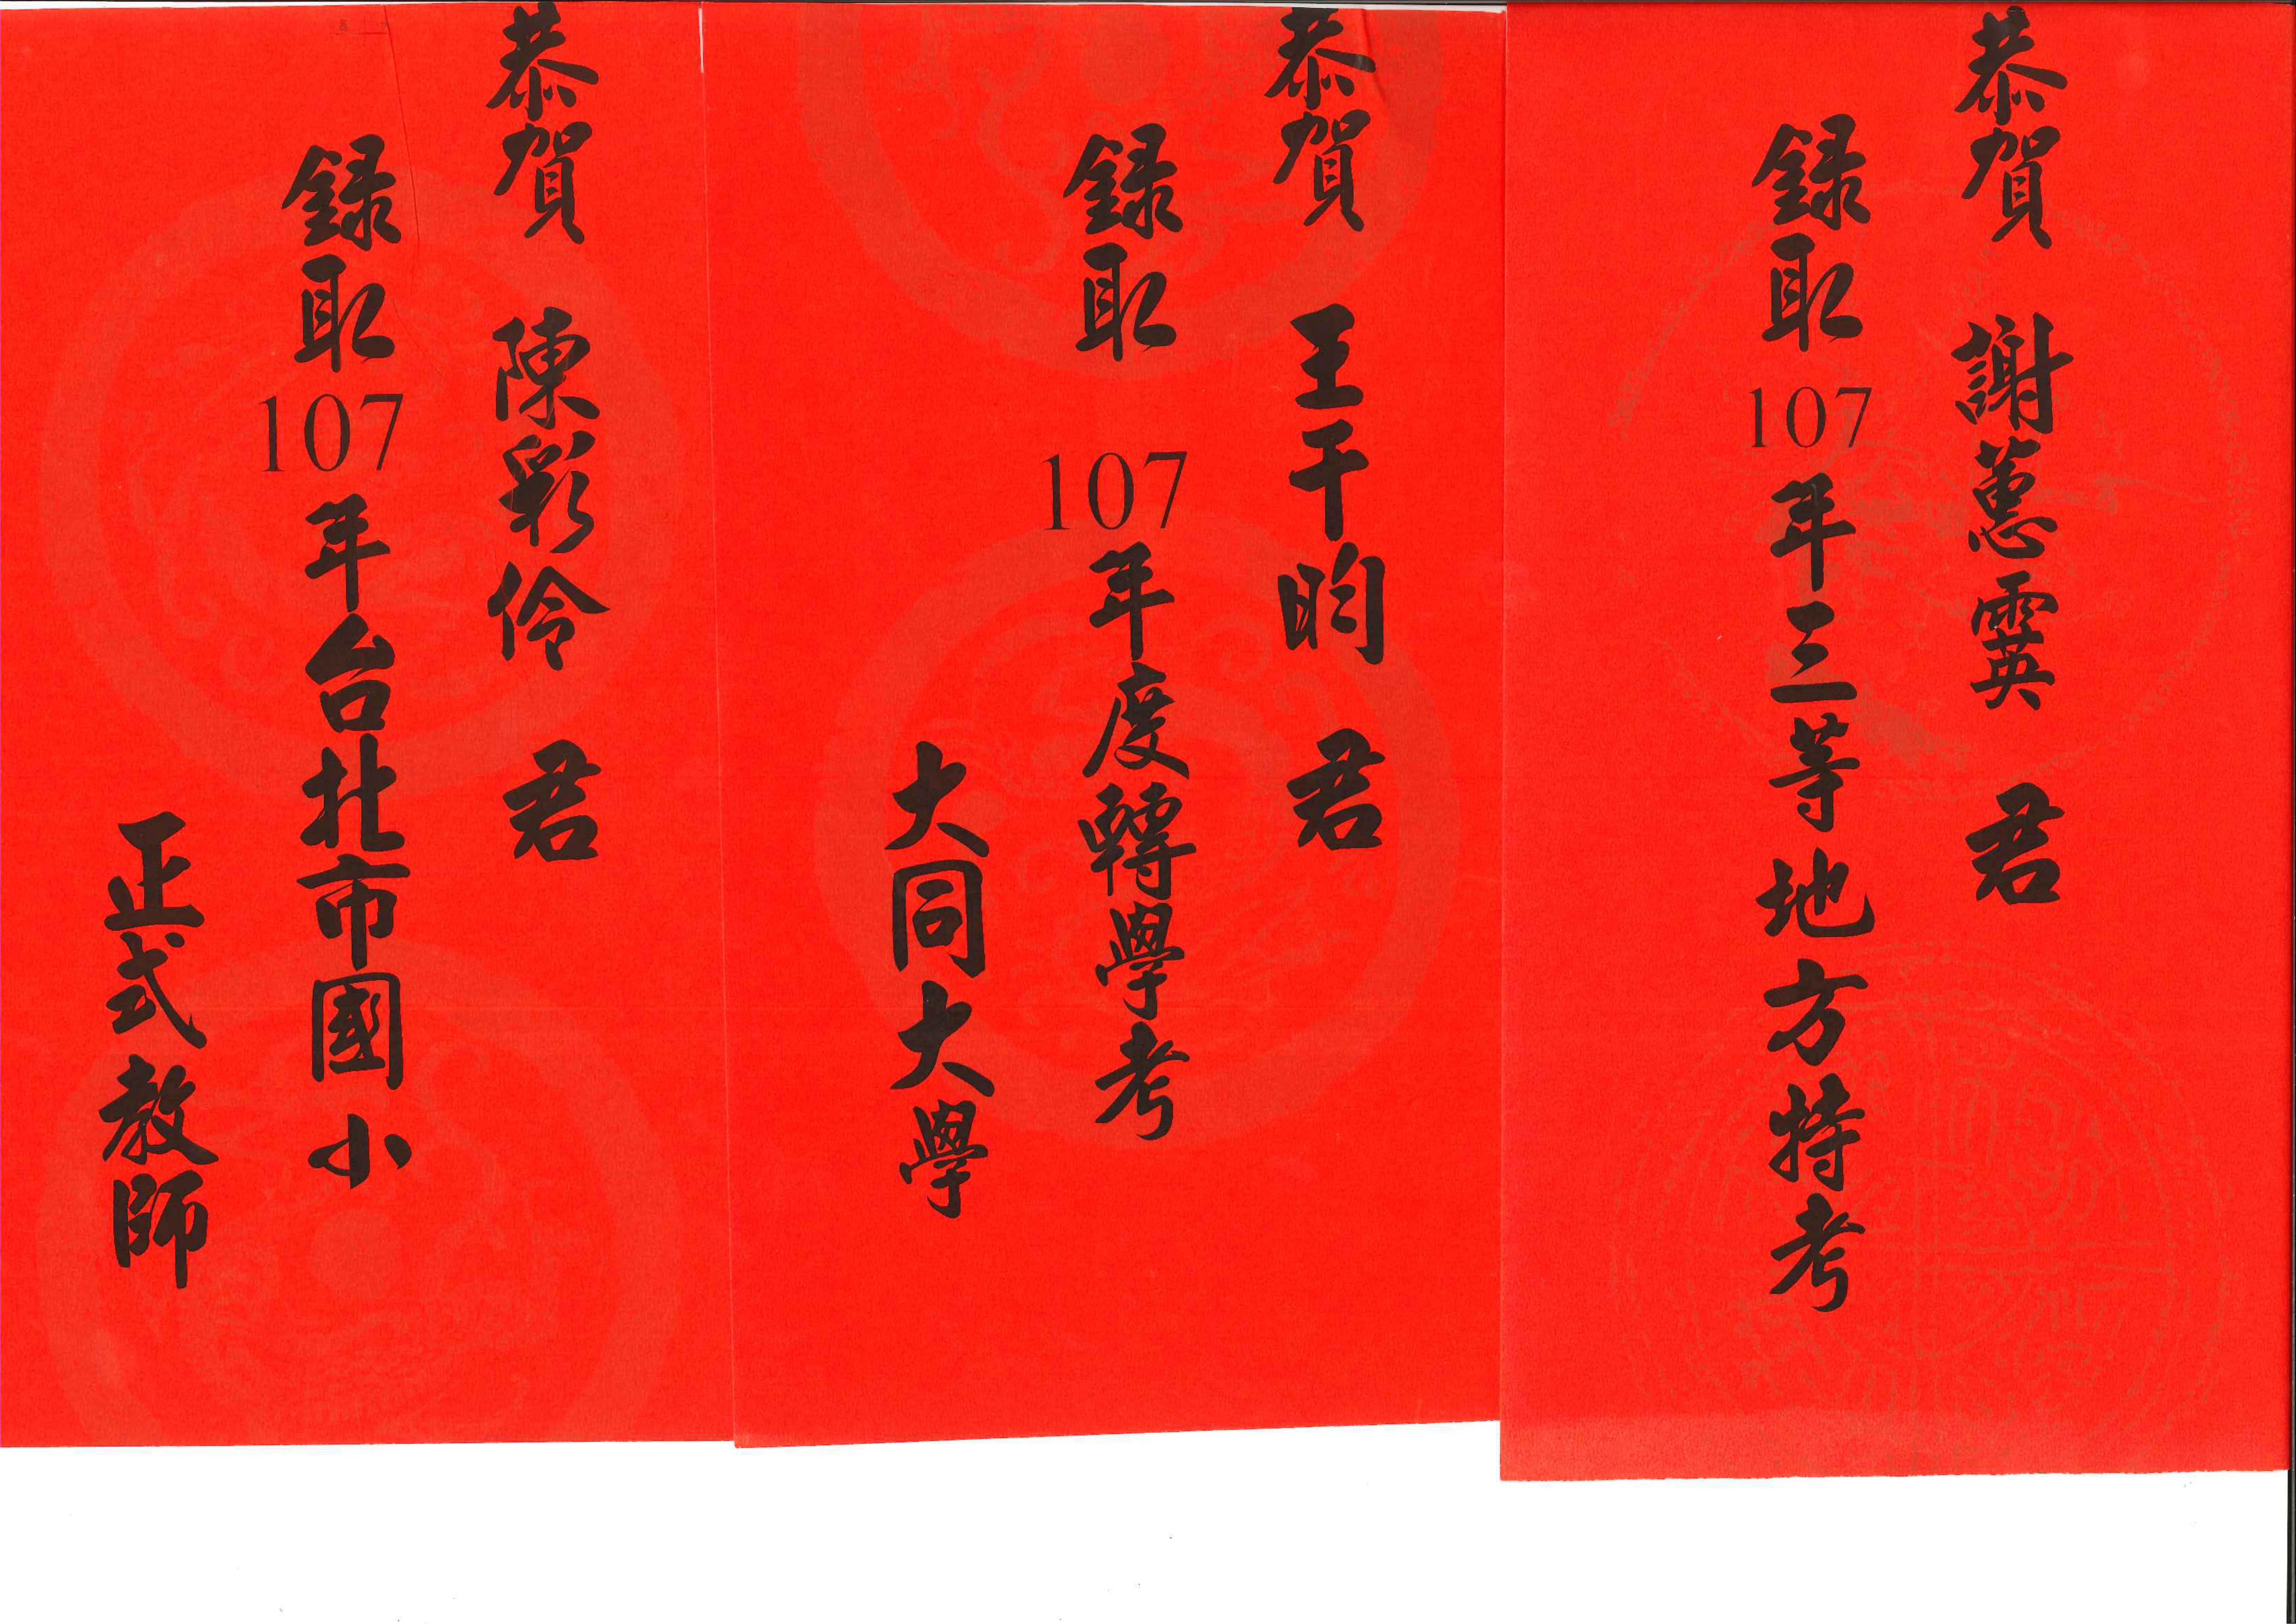 恭賀 謝蕙霙 君
錄取107年三等地方特考
恭賀 王干昀 君
錄取 107年度轉學考
大同大學
恭賀 陳彩伶 君
錄取107年台北市國小
正式教師